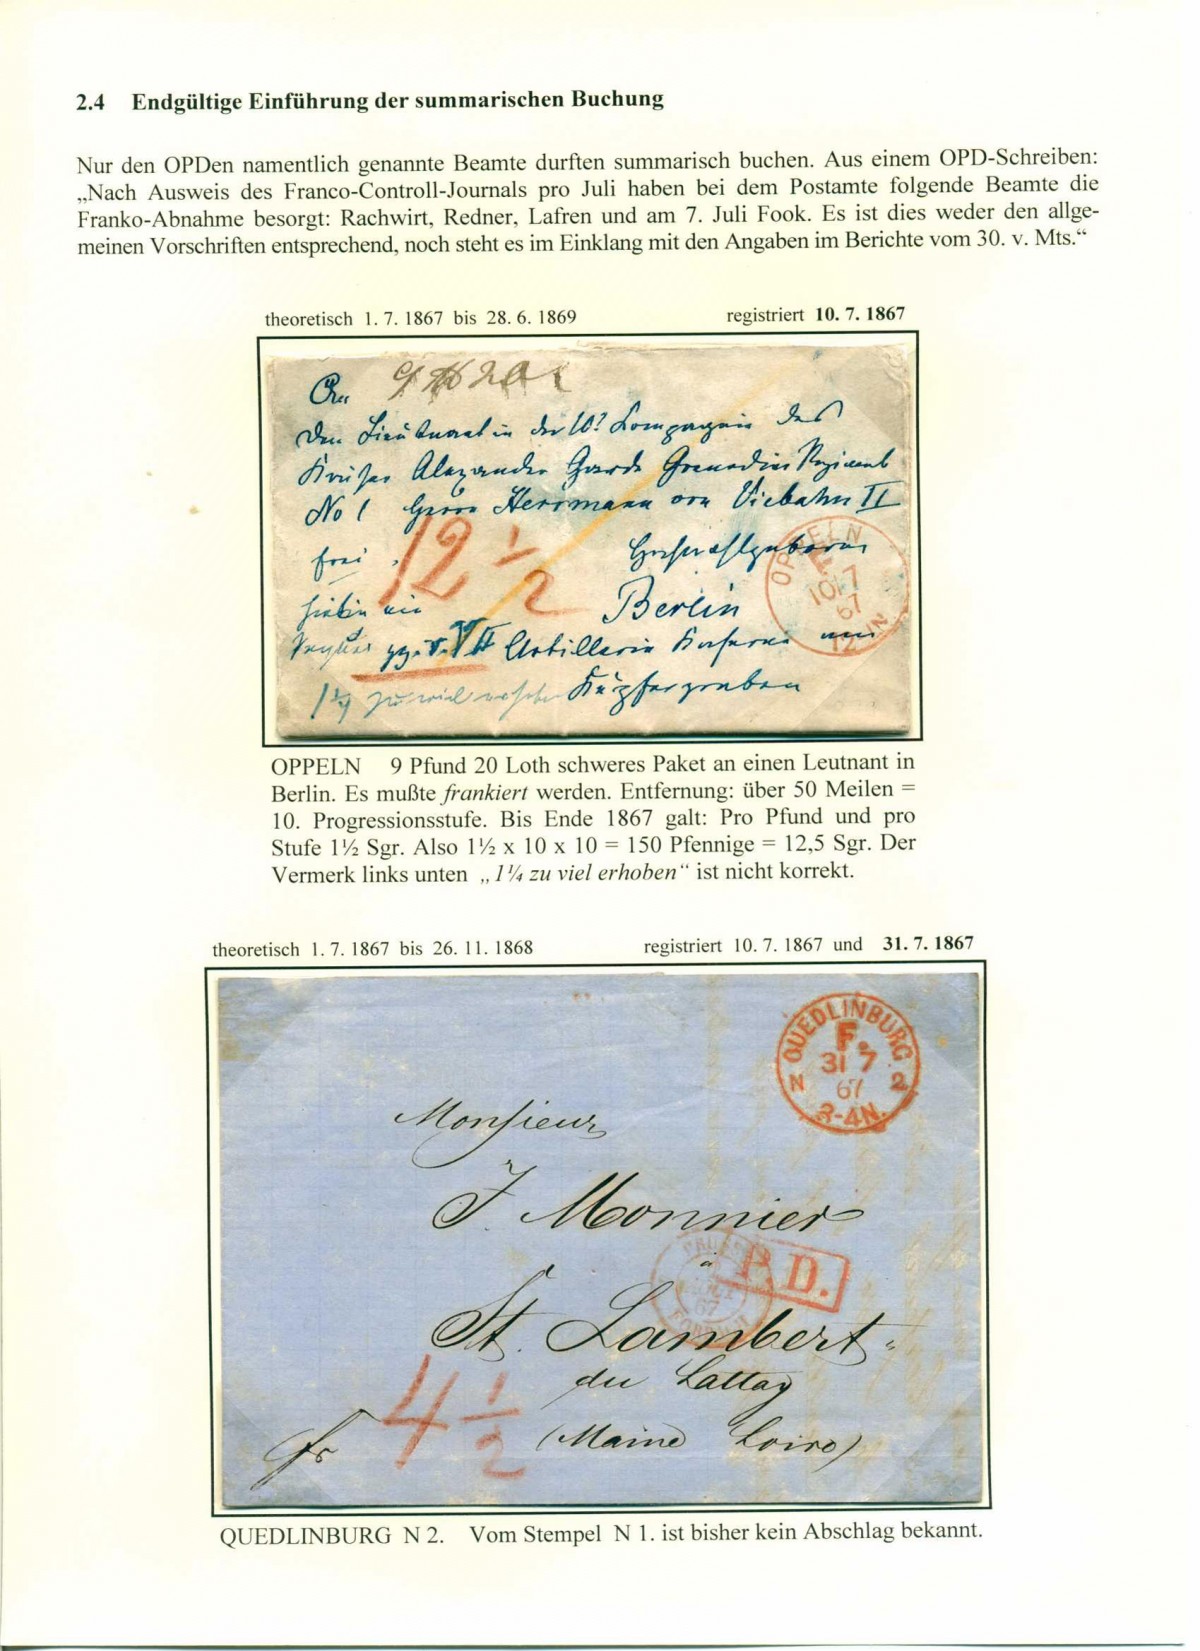 2.4 Endgültige Einführung der summarischen Buchung
Nur den OPDen namentlich genannte Beamte durften summarisch buchen. Aus einem OPD-Schreiben:
„Nach Ausweis des Franco-Controll-Journals pro Juli haben bei dem Postamte folgende Beamte die
Franko-Abnahme besorgt: Rachwirt, Redner, Lafren und am 7. Juli Fook. Es ist dies weder den allge-
meinen Vorschriften entsprechend, noch steht es im Einklang mit den Angaben im Berichte vom 30. v. Mts.“
theoretisch 1. 7. 1867 bis 28. 6. 1869 registriert 10. 7. 1867
An
den Lieutenant in der 10t Kompagnie des
Kaiser Alexander Garde Grenadier Regiment
No 1 Herrn Herrmann von Viebahn II
frei Hochwohlgeboren
12 1/2
OPPELN
10 7
67
12 IN
hiebei ein Berlin
Artillerie Kaserne am
1 1/4 zu viel erhoben Kupfergraben
OPPELN 9 Pfund 20 Loth schweres Paket an einen Leutnant in
Berlin. Es mußte frankiert werden. Entfernung: über 50 Meilen =
10. Progressionsstufe. Bis Ende 1867 galt: Pro Pfund und pro
Stufe 1½ Sgr. Also 1½ x 10 x 10 = 150 Pfennige = 12,5 Sgr. Der
Vermerk links unten „1¼ zu viel erhoben“ ist nicht korrekt.
theoretisch 1. 7. 1867 bis 26. 11. 1868 registriert 10. 7. 1867 und 31. 7. 1867
QUEDLINBURG.
F.
31 7
67
N 2
3-4N.
Monsieur
J. Monnier
à
P.D.
St. Lambert
du Lattay
(Maine Loire)
4 1/2
fr
QUEDLINBURG N 2. Vom Stempel N 1. ist bisher kein Abschlag bekannt.